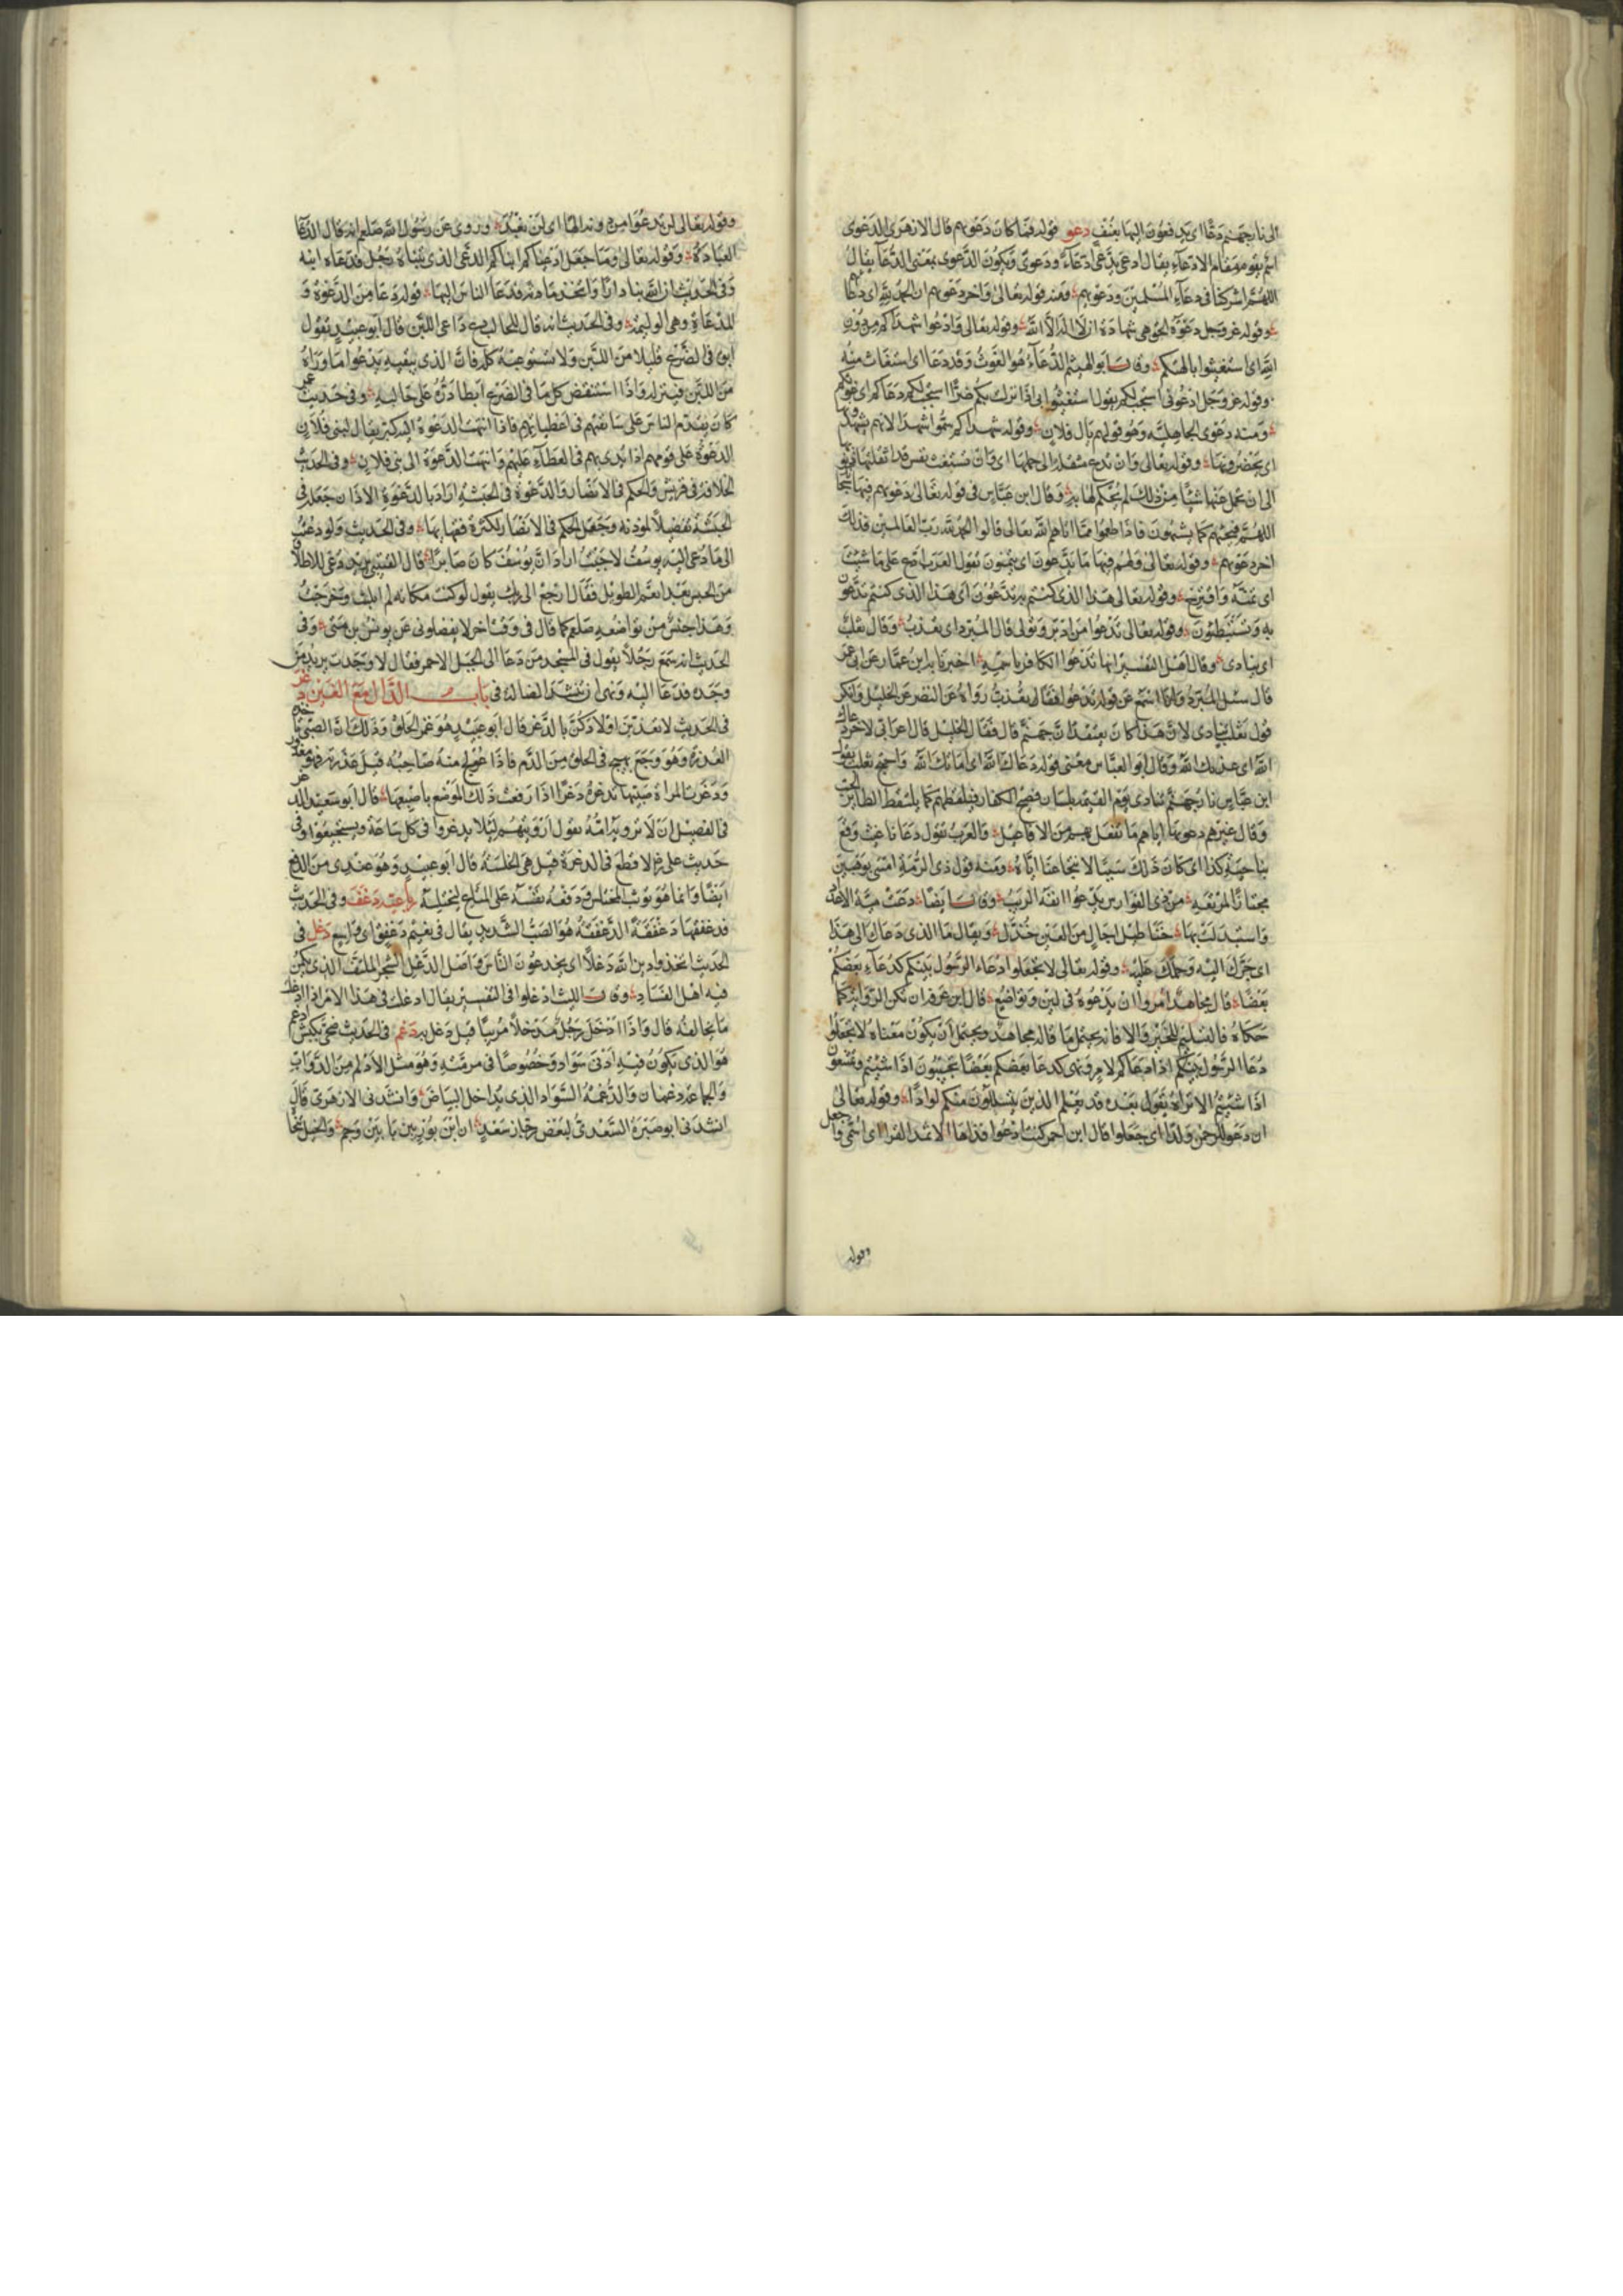 الى نار جهنم دعا اى يدفعون اليها بعنف دعو قوله فما كان دعوىهم قال الازهرى الدعوى
اسم يقوم مقام الادعاء يقال ادعى يدعى ادعاء ودعوى وتكون الدعوى بمعنى الدعاء يقال
اللهم اشركنا فى دعاء المسلمين ودعوىهم ومنه قوله تعالى واخر دعوىهم ان الحمد لله اى دعا
وقوله عز وجل دعوة الحق هى شهادة ان لا اله الا الله وقوله تعالى وادعوا شهداكم من دون
الله اى استغيثوا بالهتكم وقال ابو الهيثم الدعاء هو الغوث وقد دعا اى استغاث منه
وقوله عز وجل ادعونى استجب لكم يقول استغيثوا بى اذا نزل بكم ضر استجب لكم دعاكم اى غوثكم
ومنه دعوى الجاهلية وهو قولهم يال فلان وقوله شهداكم سموا شهدا لانهم يشهدون
اى يحضرونها وقوله تعالى وان تدع مثقلة الى حملها اى وان تستغث نفس قد اثقلتها ذنوبها
الى ان يحمل عنها شيئا من ذلك لم يحكم لها به وقال ابن عباس فى قوله تعالى دعوىهم فيها سبحانك
اللهم فيجيئهم كما يشتهون فاذا طعموا مما اتاهم الله تعالى قالوا الحمد لله رب العالمين فذلك
اخر دعوىهم وقوله تعالى ولهم فيها ما يدعون اى يتمنون تقول العرب ادع على ما شئت
اى تمنه واقترحه وقوله تعالى هذا الذى كنتم به تدعون اى هذا الذى كنتم تدعون
به وتستبطئون وقوله تعالى تدعوا من ادبر وتولى قال المبرد اى تعذب وقال ثعلب
اى ينادى وقال اهل التفسير انها تدعوا الكافر باسمه اخبرنا به ابن عمار عن ابى عمر
قال سئل المبرد وانا اسمع عن قوله تدعوا فقال تعذب رواه عن النضر عن الخليل وانكر
قول ثعلب تنادى لان هذا كان يعتقد ان جهنم قال فقال الخليل قال اعرابى لاخر دعاك
الله اى عذبك الله وقال ابو العباس معنى قوله دعاك الله اى اماتك الله واحتج ثعلب بقول
ابن عباس نار جهنم تنادى يوم القيمة بلسان فصيح الكفار فتلتقطهم كما يلتقط الطائر الحب
وقال غيرهم دعوتها اياهم ما تفعل بهم من الافاعيل والعرب تقول دعانا غيث وقع
بناحية كذا اى كان ذلك سببا لانتجاعنا اياه ومنه قول ذى الرمة امسى بوهبين
مجتازا لمرتعه من ذى الفوارس يدعوا انفه الربب وقال ايضا دعت مية الاعداد
واستبدلت بها خناطيل اجال من العين خذل ويقال ما الذى دعاك الى هذا
اى جرك اليه وحملك عليه وقوله تعالى لا تجعلوا دعاء الرسول بينكم كدعاء بعضكم
بعضا قال مجاهد امروا ان يدعوه فى لين وتواضع قال ابن عرفة ان تكن الرواية كما
حكاه فالتسليم للخبر والا فانه يحتمل ما قاله مجاهد ويحتمل ان يكون معناه لا تجعلوا
دعا الرسول بينكم اذا دعاكم لامر ونهى كدعا بعضكم بعضا تجيبون اذا شئتم وتمتنعون
اذا شئتم الا تراه يقول بعده قد يعلم الله الذين يتسللون منكم لواذا وقوله تعالى
ان دعوا للرحمن ولدا اى جعلوا قال ابن احمر كنت ادعوا قذاها الاثمد القردا اى اسمى واجعل
وقوله
وقوله تعالى لن ندعوا من دونه الها اى لن نعبد وروى عن رسول الله صلعم انه قال الدعا
العبادة وقوله تعالى وما جعل ادعياكم ابناكم الدعى الذى يتبناه رجل فدعاه ابنه
وفى الحديث ان الله بنا دارا واتخذ مادبة فدعا الناس اليها قوله دعا من الدعوة و
المدعاة وهى الوليمة وفى الحديث انه قال للحالب دع داعى اللبن قال ابو عبيد يقول
ابق فى الضرع قليلا من اللبن ولا تستوعبه كله فان الذى يبقيه يدعوا ما وراه
من اللبن فينزله واذا استنقض كل ما فى الضرع ابطا دره على حالبه وفى حديث عمر
كان يقدم الناس على سابقتهم فى اعطياتهم فاذا انتهت الدعوة اليه كبر يقال لبنى فلان
الدعوة على قومهم اذا بدى بهم فى العطاء عليهم وانتهت الدعوة الى بنى فلان وفى الحديث
الخلافة فى قريش والحكم فى الانصار والدعوة فى الحبشة اراد بالدعوة الاذان جعله فى
الحبشة تفضيلا لموذنه وجعل الحكم فى الانصار لكثرة فقهايها وفى الحديث ولو دعيت
الى ما دعى اليه يوسف لاجبت اراد ان يوسف كان صابرا قال القتيبى يريد دعى للاطلاق
من الحبس بعد الغم الطويل فقال ارجع الى ربك يقول لو كنت مكانه لم البث وخرجت
وهذا جنس من تواضعه صلعم كما قال فى وقت اخر لا تفضلونى عن يونس بن متى وفى
الحديث انه سمع رجلا يقول فى المسجد من دعا الى الجمل الاحمر فقال لا وجدت يريد من
وجده فدعا اليه ونهى ان تنشد الضالة فى باب الدال مع الغين دغر
فى الحديث لا تعذبن اولادكن بالدغر قال ابو عبيد هو غمز الحلق وذلك ان الصبى تاخذه
العذرة وهو وجع يهيج فى الحلق من الدم فاذا عولج منه صاحبه قيل عذرته فهو معذور
ودغرت المراة صبيها تدغره دغرا اذا رفعت ذلك الموضع باصبعها قال ابو سعيد الدغر
فى الفصيل ان لا ترويه امه يقول اروينهم ليلا يدغروا فى كل ساعة ويستجيعوا وفى
حديث على رض لا قطع فى الدغرة قيل هى الخلسة قال ابو عبيد وهو عندى من الدفع
ايضا وانما هو توثب المختلس ودفعه نفسه على المتاع ليختلسه رباعيه دغفق وفى الحديث
فدغفقها دغفقة الدغفقة هو الصب الشديد يقال فى نعيم دغفق اى واسع دغل فى
الحديث اتخذوا دين الله دغلا اى يخدعون الناس واصل الدغل الشجر الملتف الذى يكمن
فيه اهل الفساد وقال الليث ادغلوا فى التفسير يقال ادغلت فى هذا الامر اذا ادخلت
ما يخالفه قال واذا دخل رجل مدخلا مريبا قيل دغل به دغم فى الحديث ضحى بكبش ادغم
هو الذى يكون فيه ادنى سواد وخصوصا فى مرمته وهو مثل الادلم من الدواب
والجماعة دغمان والدغمة السواد الذى يداخل البياض وانشدنى الازهرى قال
انشدنى ابو صبرة السعدى لبعض رجاز سعد